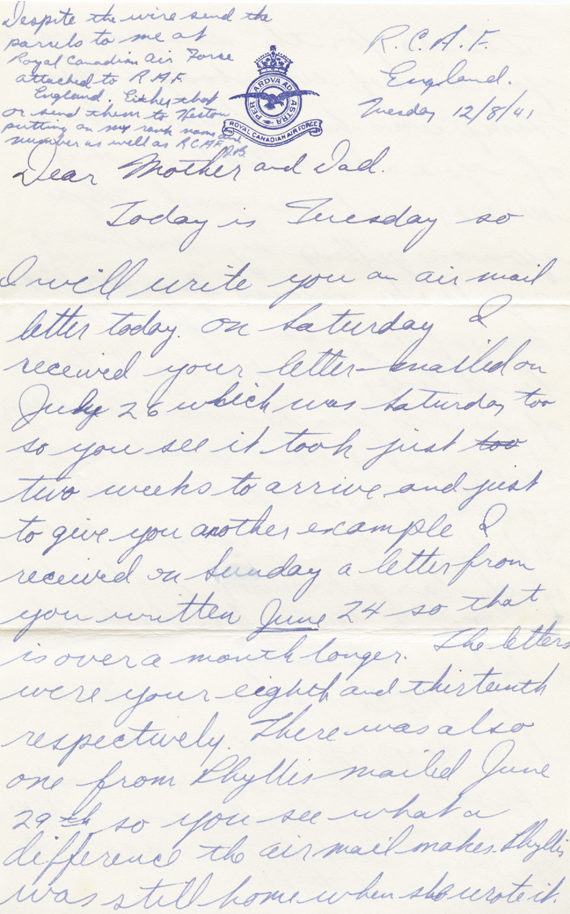 Despite the wire send the
parcels to me at
Royal Canadian Air Force
attached to R.A.F.
England. Either that
or send them to Weston
putting on my rank name and
number as well as R.C.A.F.
PER ARDVA AD ASTRA
ROYAL CANADIAN AIR FORCE
R.C.A.F.
England.
Tuesday 12/8/41
Dear Mother and Dad.
Today is Tuesday so
I will write you an air mail
letter today. On Saturday I
received your letter mailed on
July 26 which was Saturday too
so you see it took just too
two weeks to arrive and just
to give you another example I
received on Sunday a letter from
you written June 24 so that
is over a month longer. The letters
were your eighth and thirteenth
respectively. There was also
one from Phyllis mailed June
29th so you see what a
difference the air mail makes. Phyllis
was still home when she wrote it.